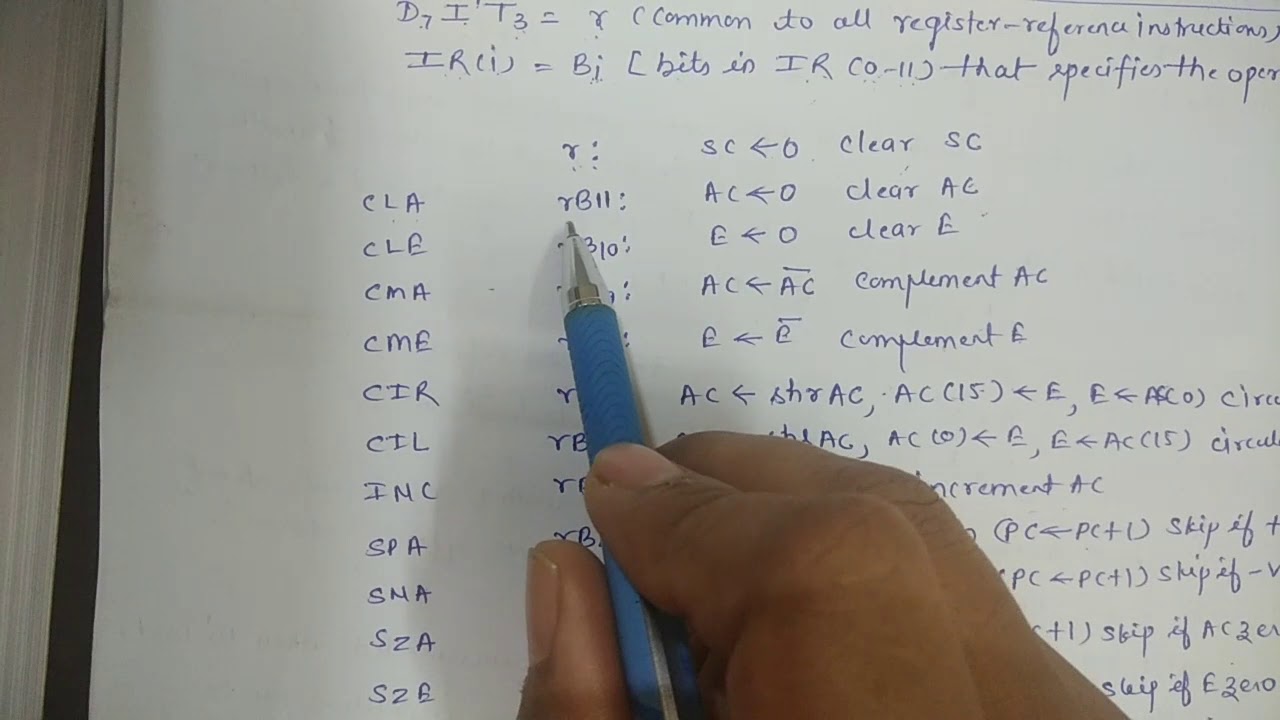 D7 I' T3 = r (Common to all register-reference instructions)
IR(i) = Bi [bits in IR (0-11) that specifies the oper
r: SC ← 0 clear SC
CLA rB11: AC ← 0 clear AC
CLE B10: E ← 0 clear E
CMA : AC ← A̅C̅ complement AC
CME : E ← E̅ complement E
CIR r AC ← shr AC, AC(15) ← E, E ← AC(0) circu
CIL rB shl AC, AC(0) ← E, E ← AC(15) circul
INC rB increment AC
SPA rB (PC ← PC+1) skip if +
SNA (PC ← PC+1) skip if -v
SZA +1) skip if AC zer
SZE skip if E zero